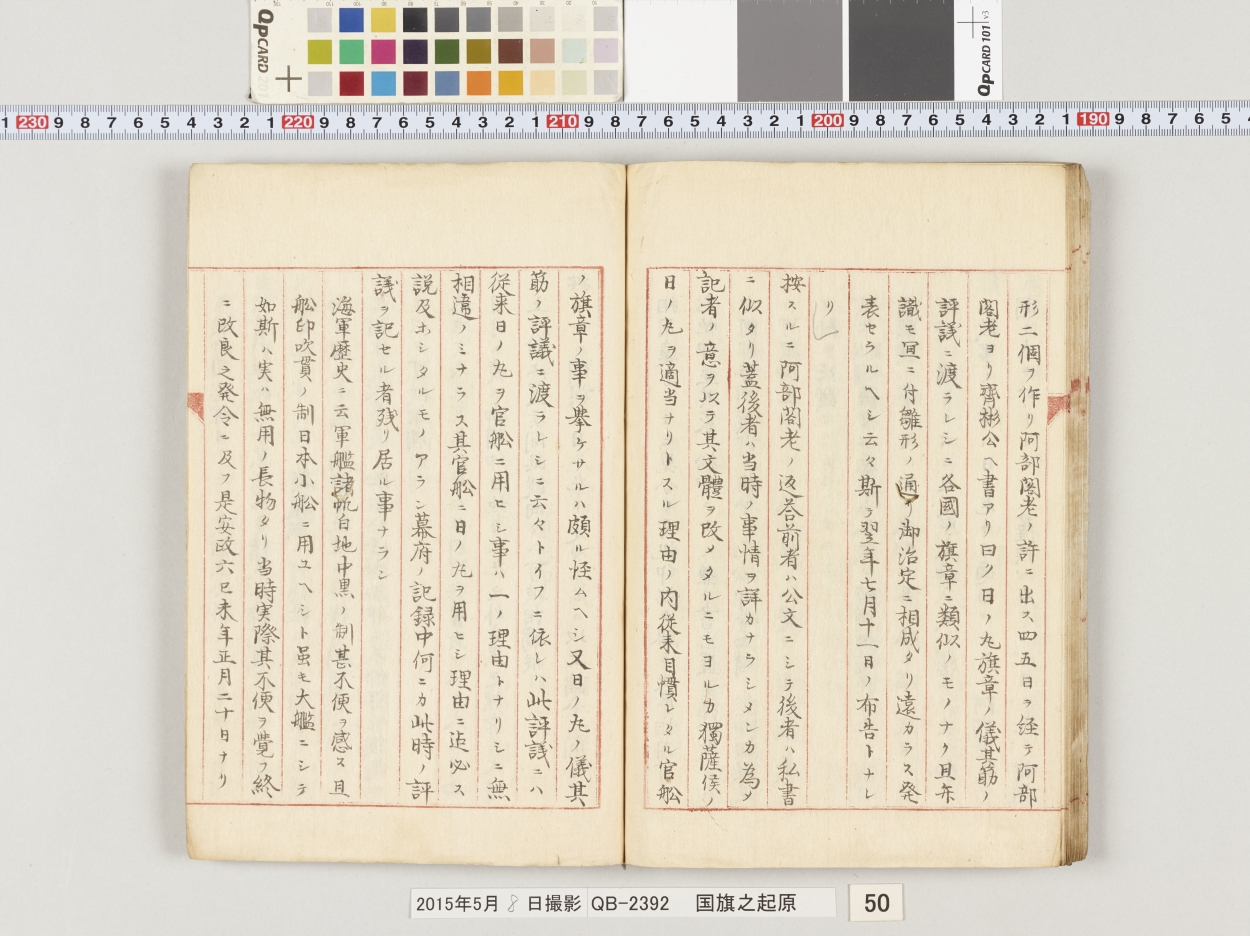 QPCARD 201
QPCARD 101 v3
1 230 9 8 7 6 5 4 3 2 1 220 9 8 7 6 5 4 3 2 1 210 9 8 7 6 5 4 3 2 1 200 9 8 7 6 5 4 3 2 1 190 9 8 7 6 5
形二個ヲ作リ阿部閣老ノ許ニ出ス四五日ヲ経テ阿部
閣老ヨリ齊彬公ヘ書アリ曰ク日ノ丸旗章ノ儀其筋ノ
評議ニ渡ラレシニ各國ノ旗章ニ類似ノモノナク且矢
識モ宜ニ付雛形ノ通リ御治定ニ相成タリ遠カラス発
表セラルヘシ云々斯テ翌年七月十一日ノ布告トナレ
リ
按スルニ阿部閣老ノ返答前者ハ公文ニシテ後者ハ私書
ニ似タリ蓋後者ハ当時ノ事情ヲ詳カナラシメンカ為メ
記者ノ意ヲ以テ其文體ヲ改メタルニモヨルカ獨薩侯ノ
日ノ丸ヲ適当ナリトスル理由ノ内従来目慣レタル官舩
ノ旗章ノ事ヲ擧ケサルハ頗ル怪ムヘシ又日ノ丸ノ儀其
筋ノ評議ニ渡ラレシニ云々トイフニ依レハ此評議ニハ
従来日ノ丸ヲ官舩ニ用ヒシ事ハ一ノ理由トナリシニ無
相違ノミナラス其官舩ニ日ノ丸ヲ用ヒシ理由ニ迠必ス
説及ホシタルモノアラン幕府ノ記録中何ニカ此時ノ評
議ヲ記セル者残リ居ル事ナラン
海軍歴史ニ云軍艦諸帆白地中黒ノ制甚不便ヲ感ス且
舩印吹貫ノ制日本小舩ニ用ユヘシト虽モ大艦ニシテ
如斯ハ実ハ無用ノ長物タリ当時実際其不便ヲ覺フ終
ニ改良之発令ニ及フ是安政六己未年正月二十日ナリ
2015年5月8日撮影 QB-2392 国旗之起原
50